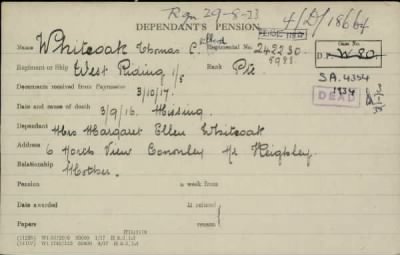 Rgn 29-8-33
DEPENDANT'S PENSION. 4/D/18664
Name Whiteoak Thomas C. killed Regimental No. 242230 Case No.
5998 D.P. W 80.
Regiment or Ship West Riding 1/5 Rank Pte SA. 4354
Documents received from Paymaster 3/10/17. 1934
DEAD
Date and cause of death 3/9/16. Missing.
Dependant Mrs Margaret Ellen Whiteoak
Address 6 North View Cononley Nr Keighley
Relationship Mother.
Pension a week from
Date awarded If refused
Papers reason